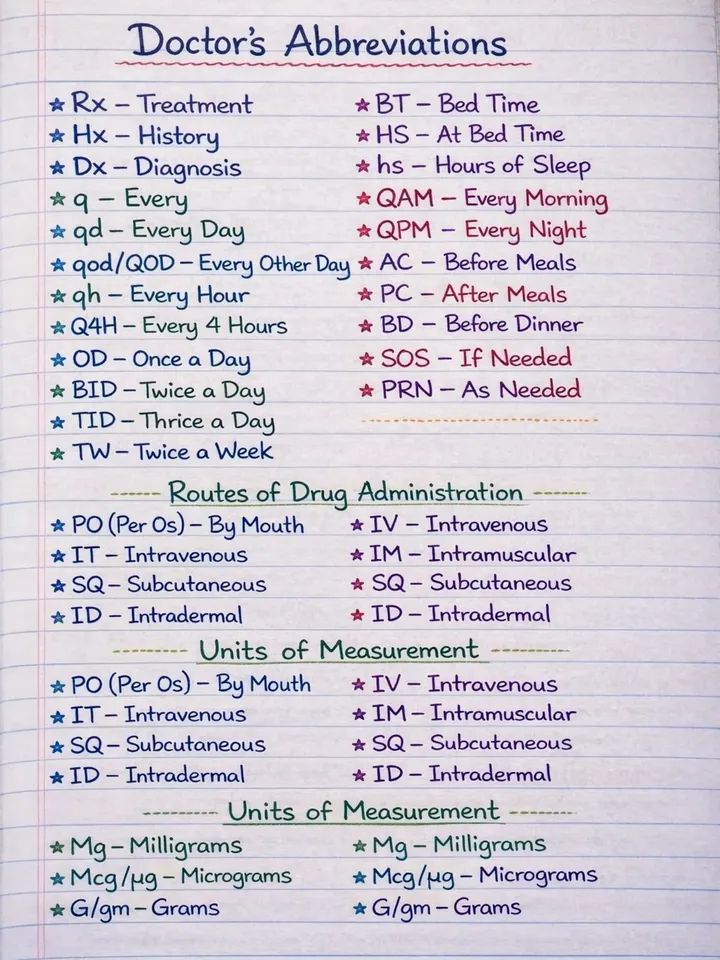 Doctor's Abbreviations
Rx – Treatment
Hx – History
Dx – Diagnosis
q – Every
qd – Every Day
qod/QOD – Every Other Day
qh – Every Hour
Q4H – Every 4 Hours
OD – Once a Day
BID – Twice a Day
TID – Thrice a Day
TW – Twice a Week
BT – Bed Time
HS – At Bed Time
hs – Hours of Sleep
QAM – Every Morning
QPM – Every Night
AC – Before Meals
PC – After Meals
BD – Before Dinner
SOS – If Needed
PRN – As Needed
Routes of Drug Administration
PO (Per Os) – By Mouth
IT – Intravenous
SQ – Subcutaneous
ID – Intradermal
IV – Intravenous
IM – Intramuscular
SQ – Subcutaneous
ID – Intradermal
Units of Measurement
PO (Per Os) – By Mouth
IT – Intravenous
SQ – Subcutaneous
ID – Intradermal
IV – Intravenous
IM – Intramuscular
SQ – Subcutaneous
ID – Intradermal
Units of Measurement
Mg – Milligrams
Mcg/μg – Micrograms
G/gm – Grams
Mg – Milligrams
Mcg/μg – Micrograms
G/gm – Grams